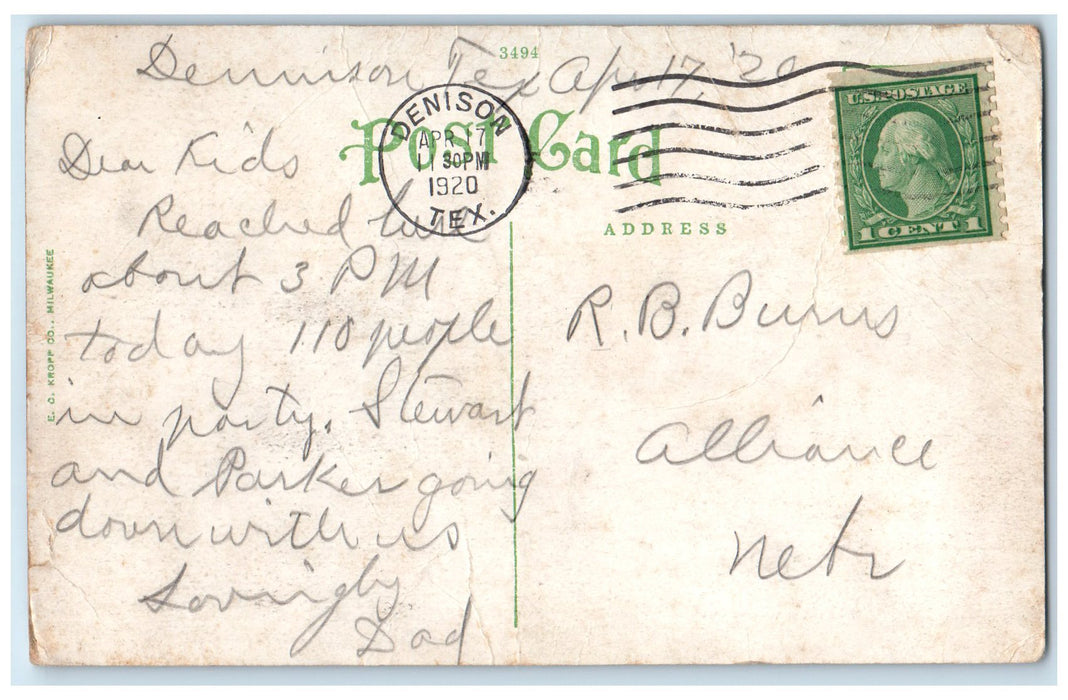 3494
Dennison, Tex Apr 17, '20
DENISON
APR 17
11 30PM
1920
TEX.
Post Card
U.S. POSTAGE
1 CENT 1
ADDRESS
Dear Kids
Reached here
about 3 PM
today 110 people
in party. Stewart
and Parker going
down with us
Lovingly
Dad
R. B. Burns
Alliance
Nebr
E. C. KROPP CO., MILWAUKEE